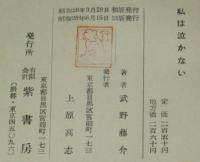 私は泣かない
定価二百五十円
地方価二百六十円
昭和28年9月10日初版発行
昭和28年9月15日再版発行
著者 武野藤介
東京都目黒区宮前町一七三
発行者 上原萬志
東京都目黒区宮前町一七三
発行所 有限会社 紫書房
(振替・東京四五〇九六)